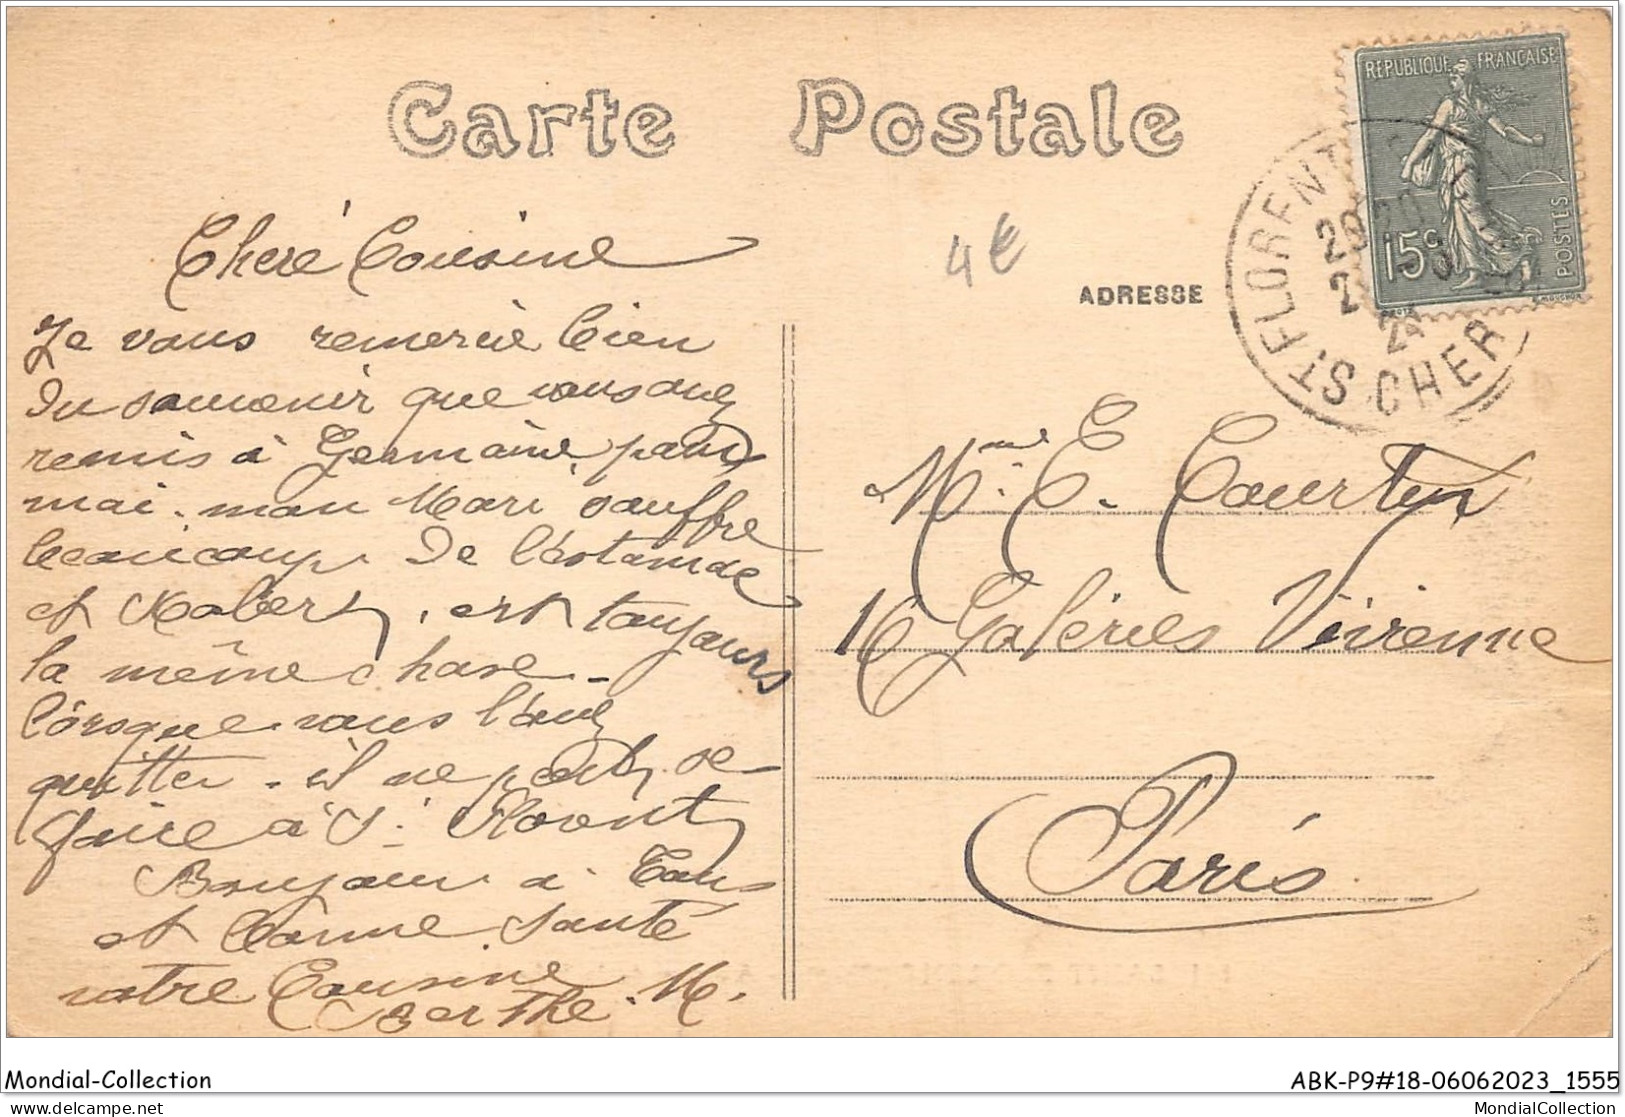 Carte Postale
RÉPUBLIQUE FRANÇAISE
15c
POSTES
ST. FLORENT S. CHER
4€
ADRESSE
Cheré Cousine
Je vous remercie bien
du souvenir que vous avez
remis à Germaine pour
moi. mon Mari souffre
beaucoup de l'estomac
et Robert, est toujours
la même chose -
lorsque vous l'avez
quitter - il ne peut se
faire à St Florent
Bonjour à Tous
et bonne Santé
votre Cousine
Berthe. M.
Mme E. C. Courtin
16 Galéries Vivienne
Paris
Mondial-Collection
ABK-P9#18-06062023_1555
https://www.delcampe.net
MondialCollection